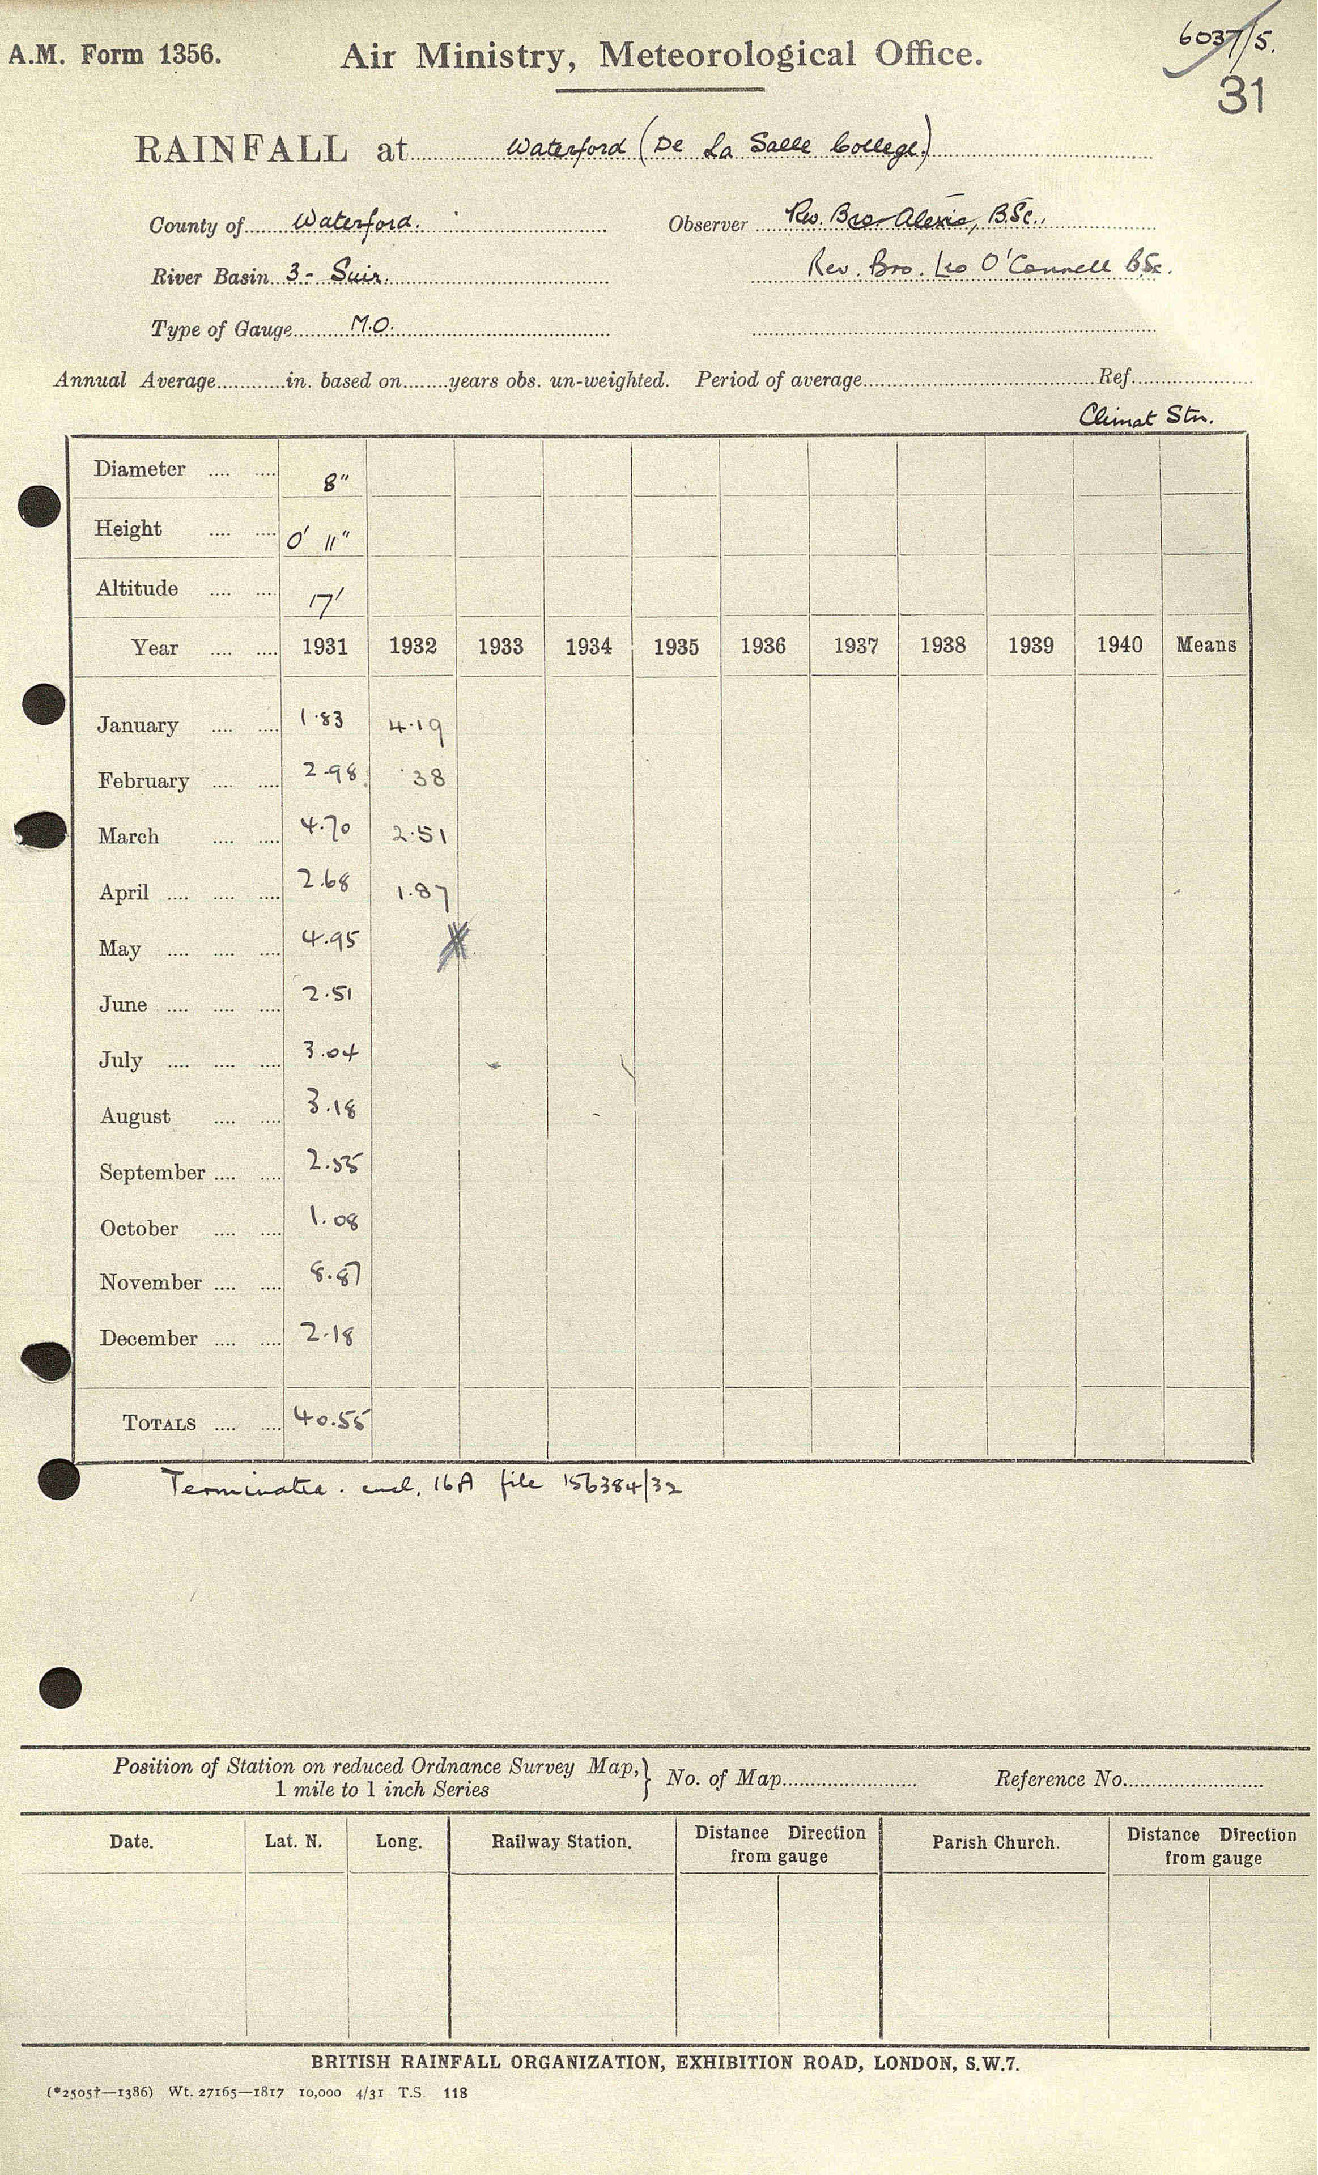 6037/5.
A.M. Form 1356. Air Ministry, Meteorological Office.
31
RAINFALL at Waterford (De La Salle College.)
County of Waterford. Observer Rev. Bro Alexis, B.Sc.,
River Basin 3 - Suir. Rev. Bro. Leo O'Connell B.Sc.
Type of Gauge M.O.
Annual Average in. based on years obs. un-weighted. Period of average Ref.
Climat Stn.
Diameter 8"
Height 0' 11"
Altitude 17'
Year 1931 1932 1933 1934 1935 1936 1937 1938 1939 1940 Means
January 1.83 4.19
February 2.98 .38
March 4.70 2.51
April 2.68 1.87
May 4.95
June 2.51
July 3.04
August 3.18
September 2.55
October 1.08
November 8.87
December 2.18
TOTALS 40.55
Terminated. encl. 16A file 156384/32
Position of Station on reduced Ordnance Survey Map, 1 mile to 1 inch Series } No. of Map Reference No.
Date. Lat. N. Long. Railway Station. Distance Direction from gauge Parish Church. Distance Direction from gauge
BRITISH RAINFALL ORGANIZATION, EXHIBITION ROAD, LONDON, S.W.7.
(*2505†—1386) Wt. 27165—1817 10,000 4/31 T.S. 118